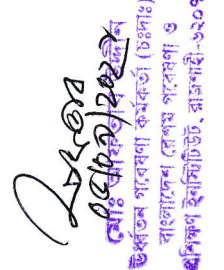 ০৬/০২/২০২২
মোঃ
উর্ধ্বতন গবেষণা কর্মকর্তা (চঃদাঃ)
বাংলাদেশ রেশম গবেষণা ও
প্রশিক্ষণ ইনস্টিটিউট, রাজশাহী-৬২০৭